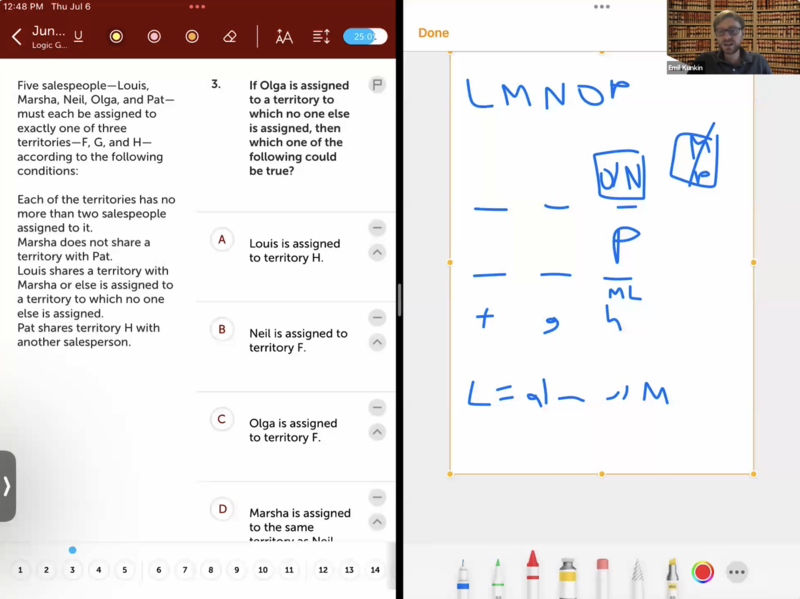 12:48 PM Thu Jul 6
Jun...
Logic G...
U
AA
25:0
Done
Emil Kunkin
Five salespeople—Louis,
Marsha, Neil, Olga, and Pat—
must each be assigned to
exactly one of three
territories—F, G, and H—
according to the following
conditions:
Each of the territories has no
more than two salespeople
assigned to it.
Marsha does not share a
territory with Pat.
Louis shares a territory with
Marsha or else is assigned to
a territory to which no one
else is assigned.
Pat shares territory H with
another salesperson.
3.
If Olga is assigned
to a territory to
which no one else
is assigned, then
which one of the
following could
be true?
A
Louis is assigned
to territory H.
B
Neil is assigned to
territory F.
C
Olga is assigned
to territory F.
D
Marsha is assigned
to the same
territory as Neil
1 2 3 4 5 6 7 8 9 10 11 12 13 14
L M N O P
O/N
M
P
P
ML
h
L =
M